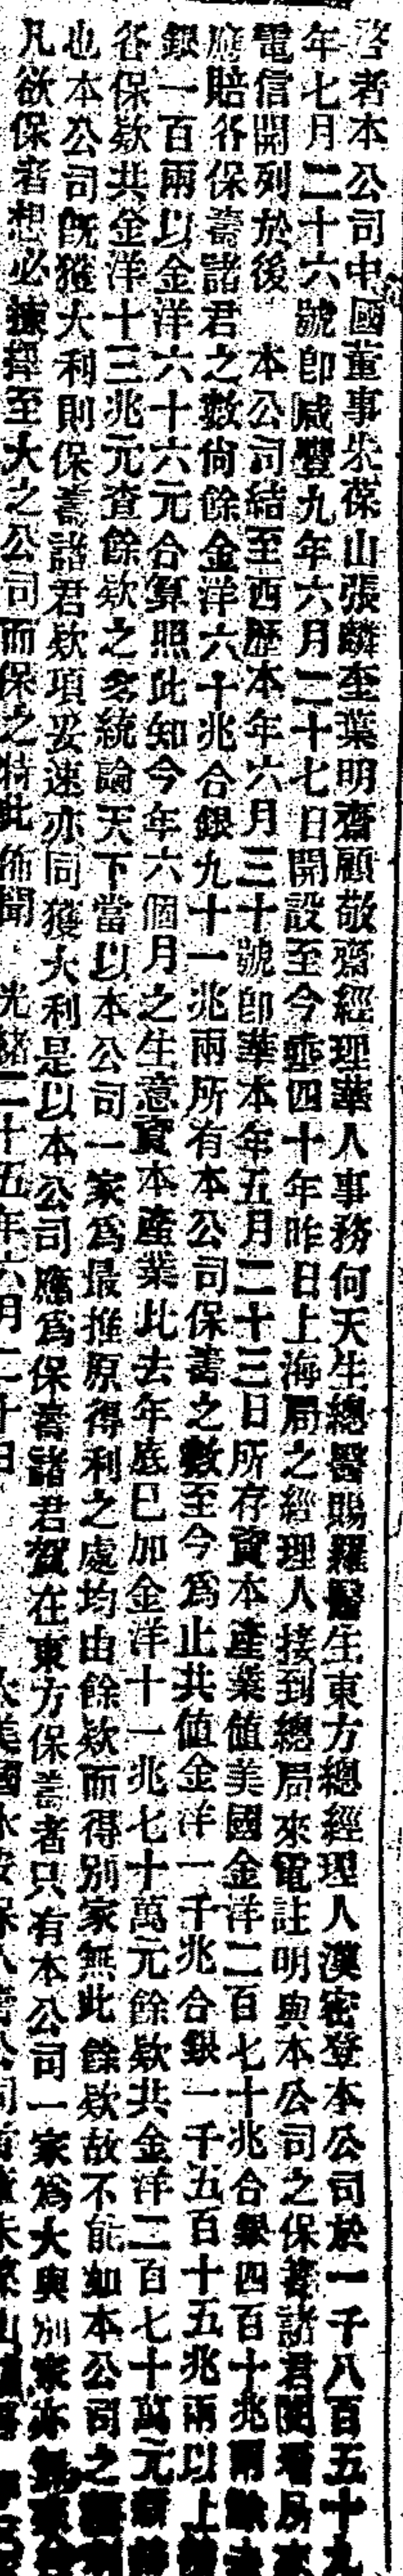 啓者本公司中國董事朱葆山張麟奎葉明齋顧敬齋經理華人事務何天生總醫賜羅醫生東方總經理人漢密登本公司於一千八百五十九
年七月二十六號卽咸豐九年六月二十七日開設至今垂四十年昨日上海局之經理人接到總局來電註明與本公司之保壽諸君閱看所
電信開列於後　本公司結至西歷本年六月三十號卽華本年五月二十三日所存資本產業值美國金洋二百七十兆合銀四百十兆兩除
應賠各保壽諸君之數尙餘金洋六十兆合銀九十一兆兩所有本公司保壽之數至今爲止共値金洋一千兆合銀一千五百十五兆兩以上
銀一百兩以金洋六十六元合算照此知今年六個月之生意資本產業比去年底已加金洋十一兆七十萬元餘欵共金洋二百七十萬元
各保欵共金洋十三兆元查餘欵之多統論天下當以本公司一家爲最推原得利之處均由餘欵而得別家無此餘欵故不能如本公司之
也本公司旣獲大利則保壽諸君欵項妥速亦同獲大利是以本公司應爲保壽諸君賀在東方保壽者只有本公司一家爲大與別家亦
凡欲保者想必揀擇至大之公司而保之特此佈聞　光緖二十五年六月二十日　大美國永安保人壽公司